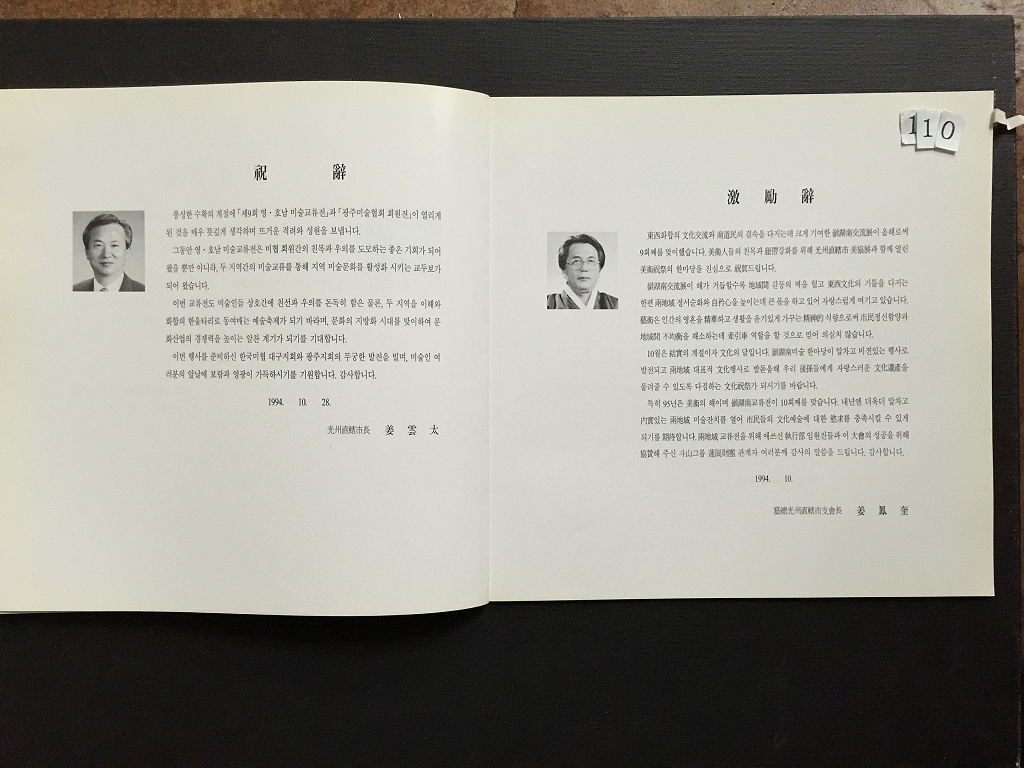 祝 辭
풍성한 수확의 계절에 「제9회 영·호남 미술교류전」과 「광주미술협회 회원전」이 열리게
된 것을 매우 뜻깊게 생각하며 뜨거운 격려와 성원을 보냅니다.
그동안 영·호남 미술교류전은 미협 회원간의 친목과 우의를 도모하는 좋은 기회가 되어
왔을 뿐만 아니라, 두 지역간의 미술교류를 통해 지역 미술문화를 활성화 시키는 교두보가
되어 왔습니다.
이번 교류전도 미술인들 상호간에 친선과 우의를 돈독히 함은 물론, 두 지역을 이해와
화합의 한울타리로 동여매는 예술축제가 되기 바라며, 문화의 지방화 시대를 맞이하여 문
화산업의 경쟁력을 높이는 알찬 계기가 되기를 기대합니다.
이번 행사를 준비하신 한국미협 대구지회와 광주지회의 무궁한 발전을 빌며, 미술인 여
러분의 앞날에 보람과 영광이 가득하시기를 기원합니다. 감사합니다.
1994. 10. 28.
光州直轄市長 姜雲太
110
激勵辭
東西화합의 文化交流와 南道民의 결속을 다지는데 크게 기여한 嶺湖南交流展이 올해로써
9회째를 맞이했습니다. 美術人들의 친목과 紐帶강화를 위해 光州直轄市 美協展과 함께 열린
美術祝祭의 한마당을 진심으로 祝賀드립니다.
嶺湖南交流展이 해가 거듭할수록 地域間 갈등의 벽을 헐고 東西文化의 기틀을 다지는
한편 兩地域 정서순화와 自矜心을 높이는데 큰 몫을 하고 있어 자랑스럽게 여기고 있습니다.
藝術은 인간의 영혼을 精華하고 생활을 윤기있게 가꾸는 精神的 식량으로써 市民정신함양과
地域間 不均衡을 해소하는데 牽引車 역할을 할 것으로 믿어 의심치 않습니다.
10월은 結實의 계절이자 文化의 달입니다. 嶺湖南미술 한마당이 알차고 비전있는 행사로
발전되고 兩地域 대표적 文化행사로 발돋움해 우리 後孫들에게 자랑스러운 文化遺產을
물려줄 수 있도록 다짐하는 文化祝祭가 되시기를 바랍니다.
특히 95년은 美術의 해이며 嶺湖南교류전이 10회째를 맞습니다. 내년엔 더욱더 알차고
內實있는 兩地域 미술잔치를 열어 市民들의 文化예술에 대한 慾求를 충족시킬 수 있게
되기를 期待합니다. 兩地域 교류전을 위해 애쓰신 執行部 임원진들과 이 大會의 성공을 위해
協贊해 주신 斗山그룹 蓮崗財團 관계자 여러분께 감사의 말씀을 드립니다. 감사합니다.
1994. 10.
藝總光州直轄市支會長 姜鳳奎